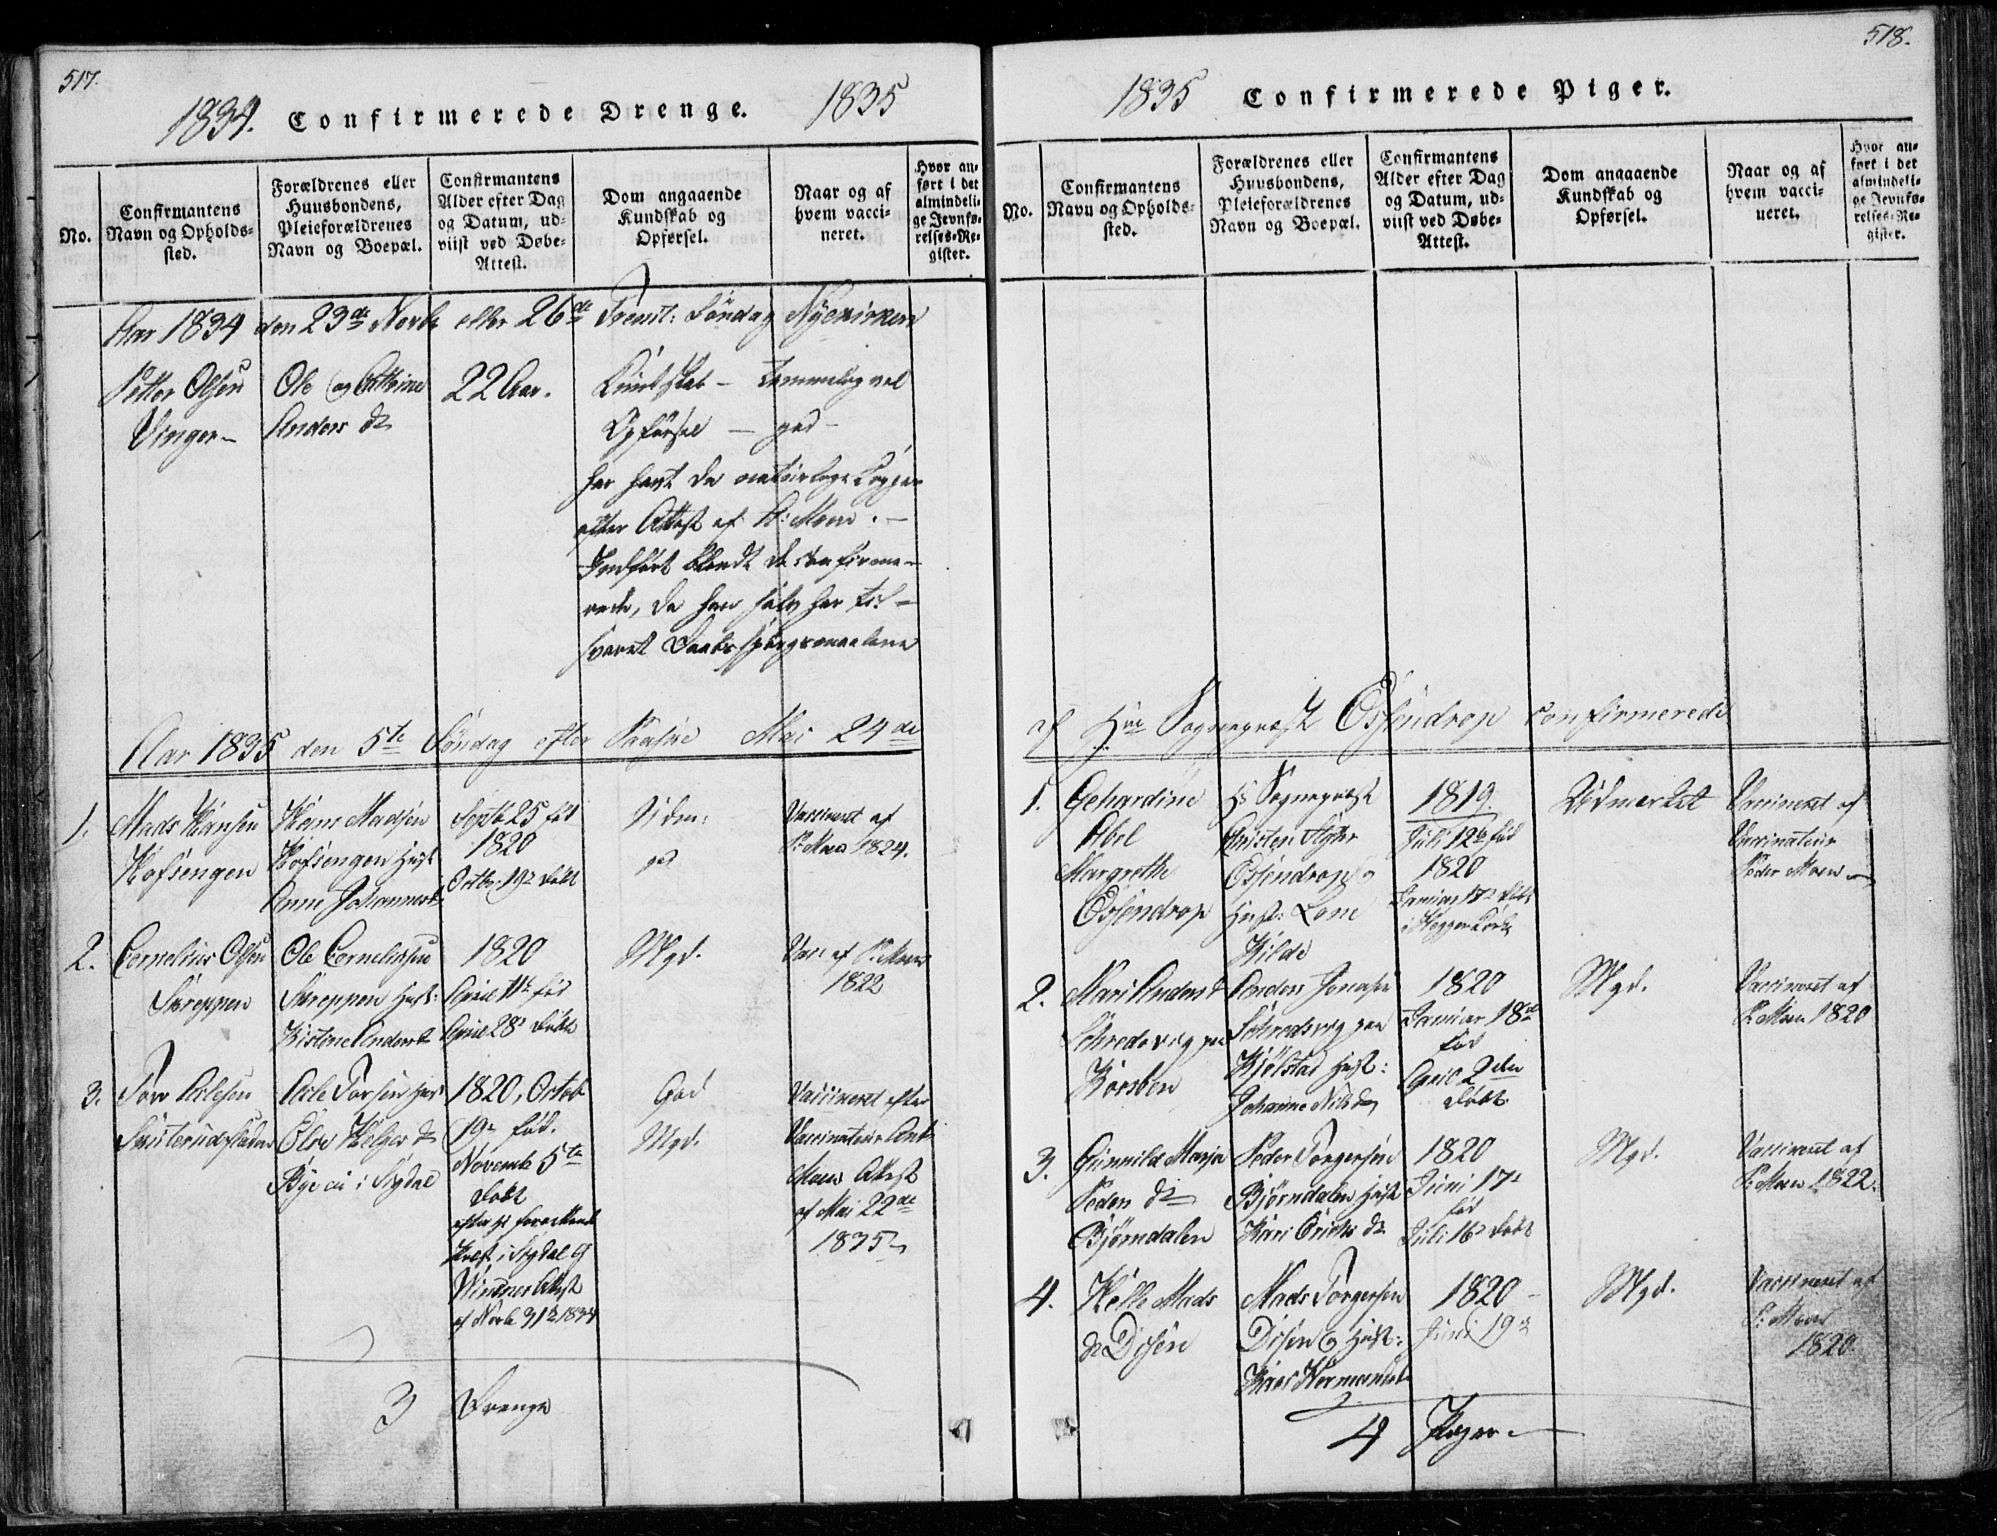 517.
1834. Confirmerede Drenge. 1835
No.
Confirmantens
Navn og Opholds-
sted.
Forældrenes eller
Huusbondens,
Pleieforældrenes
Navn og Boepæl.
Confirmantens
Alder efter Dag
og Datum, ud-
viist ved Døbe-
Attest.
Dom angaaende
Kundskab og
Opførsel.
Naar og af
hvem vacci-
neret.
Hvor an-
ført i det
almindeli-
ge Jevnfø-
relses-Re-
gister.
Aar 1834 den 23de Novbr eller 26de Søndag Nykirken
Petter Olsen
Vinger
Ole og
Anders dr
22 Aar.
Kundskab - temmelig vel
Opførsel - god -
har havt de naturlige Kopper
efter Attest af P: Moen. -
Indført blandt de confirme-
rede, da han selv har til-
svaret Daabsspørgsmaalene
Aar 1835 den 5te Søndag efter Paaske Mai 24de
1.
Mads Hansen
Hofsengen
Hans Madsen
Hofsengen Hust
Anne Johannesd
Septb 25 fød
1820
Octbr 19 døbt
god
Vaccineret af
P. Moen 1824.
2.
Cornelius Olsen
Skreppen
Ole Corneliussen
Skreppen Hust:
Kistine Andersd
1820
April 11te fød
April 28 døbt
Mgd.
Vac: af P. Moen
1822
3.
Tore Arlesen
Arle Torsen Hust
Helges dr
Bye i Sigdal
1820, Octob
19 fød.
Novemb 5te
døbt
efter
i Sigdal G
Attest
af Novb 1834
God
Mgd.
Vaccineret efter
Vaccinateur Ant.
Moens Attest
af Mai 22de
1835
3 Drenge
518.
1835 Confirmerede Piger.
No.
Confirmantens
Navn og Opholds-
sted.
Forældrenes eller
Huusbondens,
Pleieforældrenes
Navn og Boepæl.
Confirmantens
Alder efter Dag
og Datum, ud-
viist ved Døbe-
Attest.
Dom angaaende
Kundskab og
Opførsel.
Naar og af
hvem vacci-
neret.
Hvor an-
ført i det
almindeli-
ge Jevnfø-
relses-Re-
gister.
af Hr Sognepræst Ossendrop confirmerede
1.
Gehardine
Abel
Margrethe
Ossendrop
Hr Sognepræst
Christen
Ossendrop
Hust: Lene
Kilde
1819.
Juli 12te fød
1820
Januar 17 døbt
Udmærket
Vaccineret af
Vaccinateur
Peder Moen
2.
Mari Anders d
Schredsvig paa
Korsben
Anders Jonasen
Schredsvig paa
Kjølstad Hust:
Johanne Nils d
1820
Januar 18de
fød
April 2den
døbt.
Mgd.
Vaccineret af
P. Moen 1820
3.
Gunnild Marja
Peders dr
Bjørndalen
Peder Torgersen
Bjørndalen Hust
Kari Erichs dr
1820
Juni 17
fød
Juli 16 døbt
Mgd.
Vaccineret af
P. Moen 1822.
4.
Helle Mads
dr Disen
Mads Torgersen
Disen og Hust:
Hermandsd
1820 -
Juni 19
Mgd.
Vaccineret af
P: Moen
1820
4 Piger